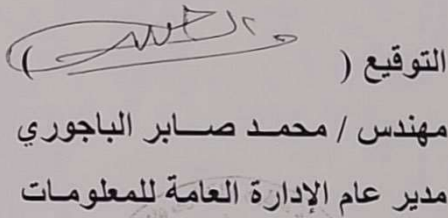 التوقيع (          )
مهندس / محمد صابر الباجوري
مدير عام الإدارة العامة للمعلومات